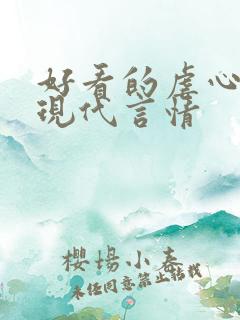 好看的虐心
現代言情
櫻場小春
未任同意禁止估載